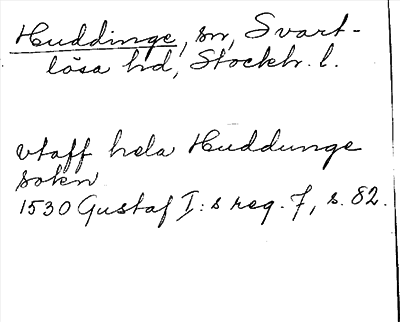 Huddinge, sn, Svart-
lösa hd, Stockh. l.
vtaff hela Huddunge
sokn
1530 Gustaf I:s reg. 7, s. 82.